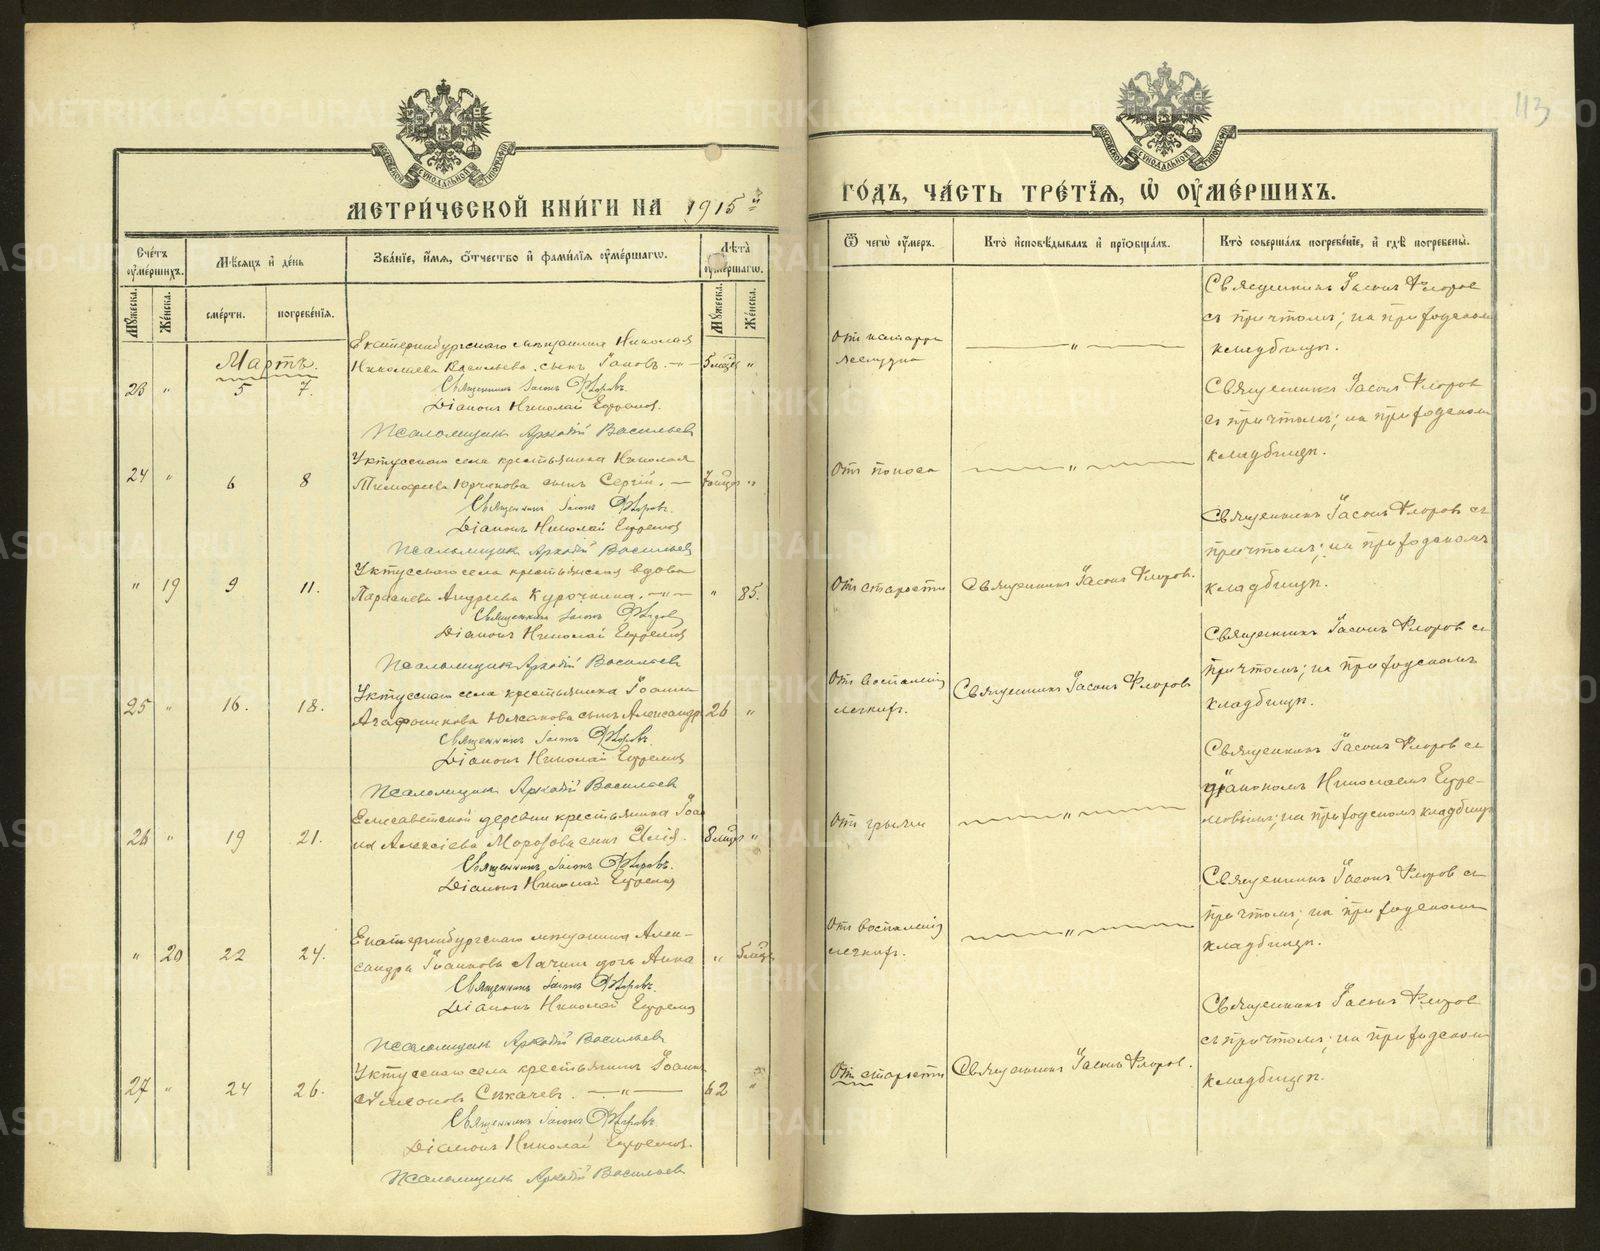 113
МЕТРИ́ЧЕСКОЙ КНИ́ГИ НА 1915й
ГО́ДЪ, ЧА́СТЬ ТРЕ́ТЇѦ, Ѽ ОУМЕ́РШИХЪ.
Сче́тъ оуме́ршихъ.
Мѣ́сяцъ и де́нь
Зва́нїе, и́мѧ, ѻ҆́тчество и фами́лїѧ оуме́ршагѡ.
Лѣ́та оуме́ршагѡ.
Ѿ чегѡ̀ оу́меръ.
Кто̀ исповѣ́дывалъ и прїѡбща́лъ.
Кто̀ соверша́лъ погребе́нїе, и гдѣ̀ погребены̀.
Му́жеска.
Же́нска.
сме́рти.
погребе́нїѧ.
Му́жеска.
Же́нска.
Мартъ.
23 " 5 7.
Екатеринбургскаго мѣщанина Николая
Николаева Васильева сынъ Іаковъ. 5 мѣцъ "
Священникъ Іасонъ Флоровъ.
Діаконъ Николай Ефремов.
Псаломщикъ Аркадій Васильевъ
От катарра
желудка
"
Священникъ Іасонъ Флоров
съ причтомъ; на приходском
кладбищѣ.
24 " 6 8
Уктусскаго села крестьянина Николая
Тимофеева сынъ Сергій. мѣцъ "
Священникъ Іасонъ Флоровъ.
Діаконъ Николай Ефремов
Псаломщик Аркадій Васильевъ
Отъ поноса
"
Священникъ Іасонъ Флоров
съ причтомъ; на приходском
кладбищѣ.
" 19 9 11.
Уктусскаго села крестьянская вдова
Параскева Андреева Курочкина. " 85.
Священникъ Іасонъ Флоров
Діаконъ Николай Ефремов
Псаломщикъ Аркадій Васильевъ
Отъ старости
Священникъ Іасонъ Флоров.
Священникъ Іасонъ Флоров съ
причтомъ; на приходскомъ
кладбищѣ.
25 " 16. 18.
Уктусскаго села крестьянина Іоанна
Агафоникова сынъ Александр 26 "
Священникъ Іасонъ Флоровъ.
Діаконъ Николай Ефремов
Псаломщикъ Аркадій Васильевъ
Отъ воспаленія
легкихъ.
Священникъ Іасонъ Флоровъ
Священникъ Іасонъ Флоров съ
причтомъ; на приходскомъ
кладбищѣ.
26 " 19 21.
Елисаветской деревни крестьянина Іоан
на Алексіева Морозова сынъ Илія. 8 мѣцъ "
Священникъ Іасонъ Флоровъ.
Діаконъ Николай Ефремов
Отъ грыжи
"
Священникъ Іасонъ Флоров съ
діакономъ Николаемъ Ефре-
мовымъ; на приходском кладбищѣ
" 20 22 24.
Екатеринбургскаго мѣщанина Алек-
сандра Іоаннова дочь Анна " 5 мѣцъ
Священникъ Іасонъ Флоровъ.
Діаконъ Николай Ефремов
Псаломщикъ Аркадій Васильевъ
Отъ воспаленія
легкихъ.
"
Священникъ Іасонъ Флоров съ
причтомъ; на приходском
кладбищѣ.
27 " 24 26.
Уктусскаго села крестьянинъ Іоаннъ
Сѵмеоновъ Сыкачевъ. 62 "
Священникъ Іасонъ Флоровъ.
Діаконъ Николай Ефремов.
Псаломщикъ Аркадій Васильевъ
Отъ старости
Священникъ Іасонъ Флоров.
Священникъ Іасонъ Флоров
съ причтомъ; на приходском
кладбищѣ.
METRIKI.GASO-URAL.RU